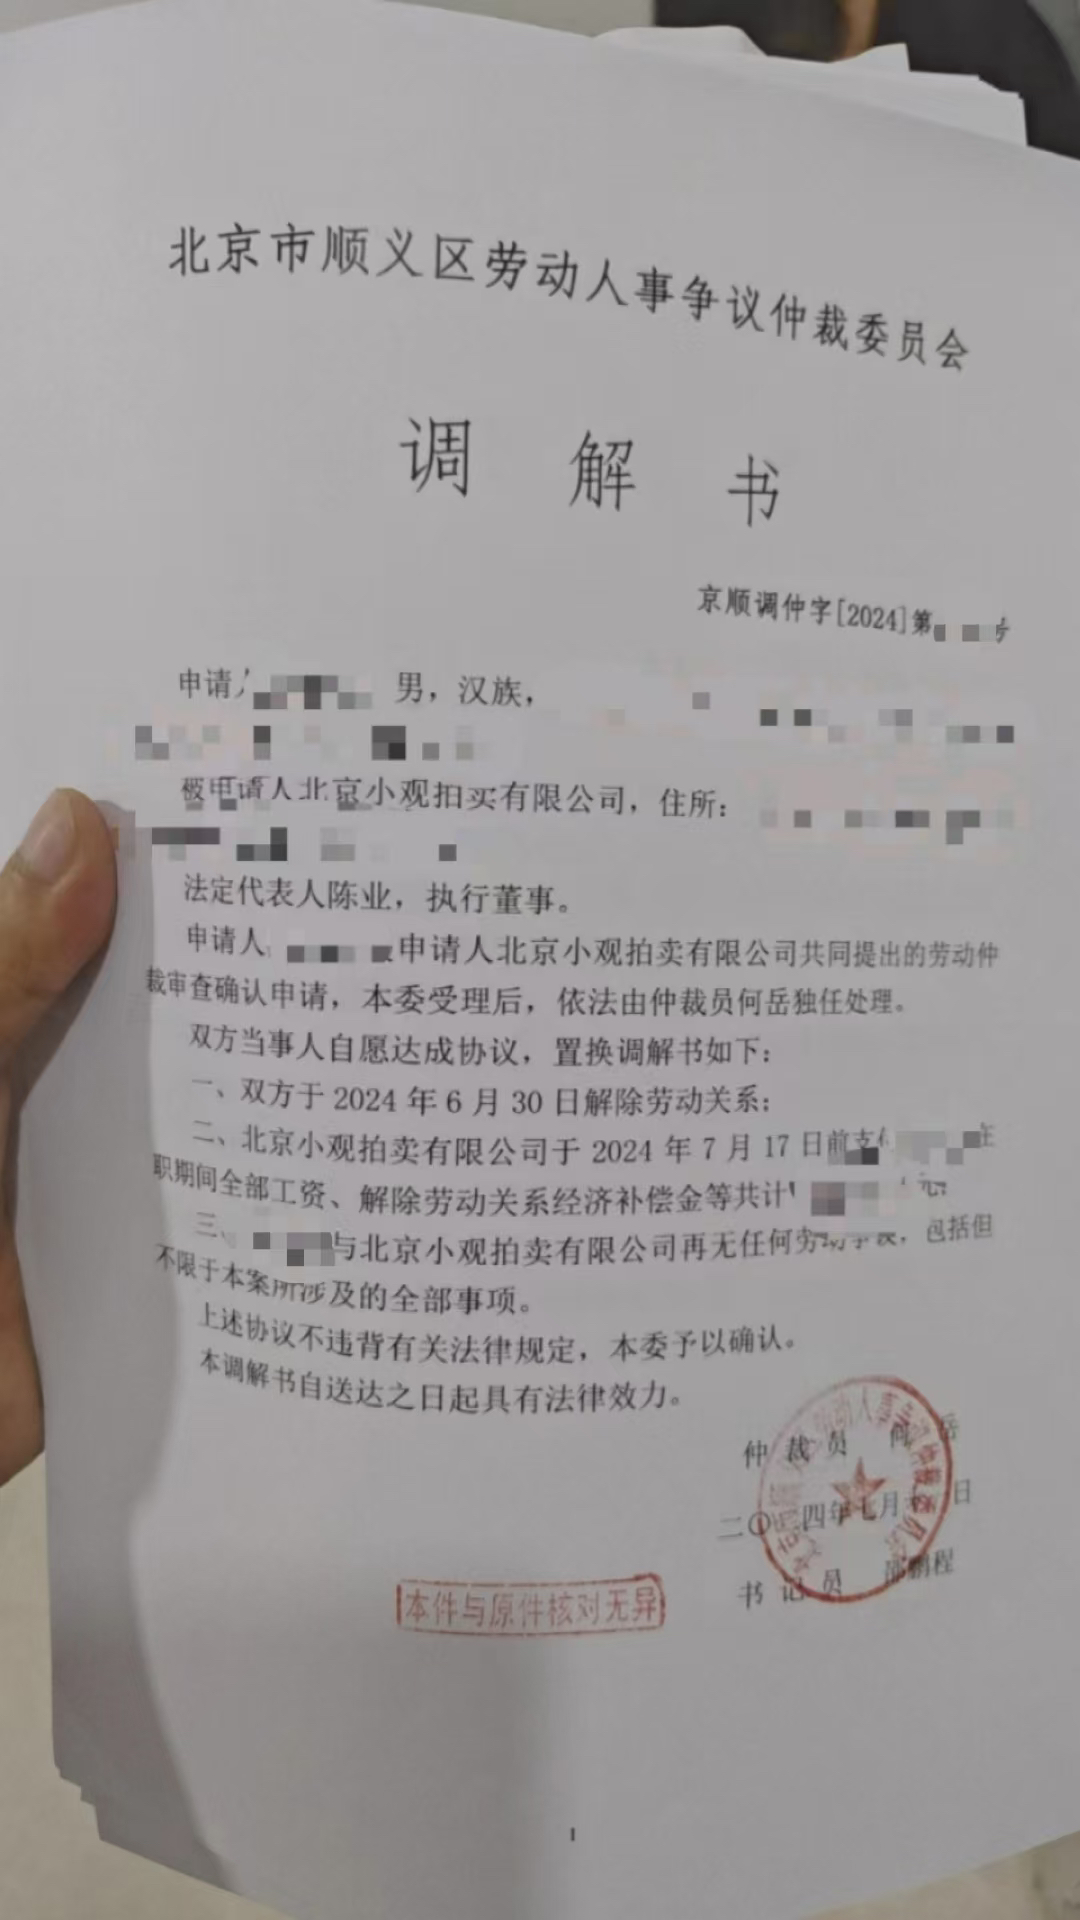 北京市顺义区劳动人事争议仲裁委员会
调解书
京顺调仲字[2024]第 号
申请人 男，汉族，
被申请人北京小观拍卖有限公司，住所：
法定代表人陈业，执行董事。
申请人 申请人北京小观拍卖有限公司共同提出的劳动仲
裁审查确认申请，本委受理后，依法由仲裁员何岳独任处理。
双方当事人自愿达成协议，置换调解书如下：
一、双方于2024年6月30日解除劳动关系；
二、北京小观拍卖有限公司于2024年7月17日前支付 在
职期间全部工资、解除劳动关系经济补偿金等共计
三、 与北京小观拍卖有限公司再无任何劳动争议，包括但
不限于本案所涉及的全部事项。
上述协议不违背有关法律规定，本委予以确认。
本调解书自送达之日起具有法律效力。
仲裁员 何岳
二〇 四年七月 日
书记员 邵鹏程
本件与原件核对无异
1